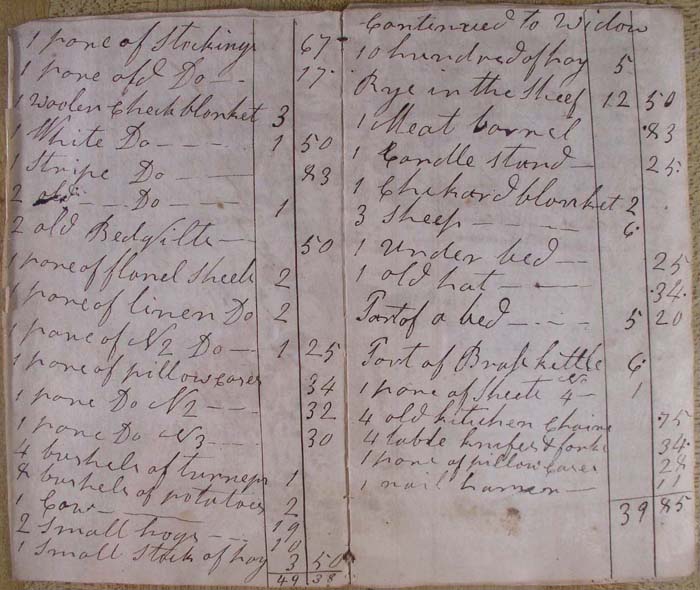 1 pare of Stockings 67
1 pare old Do - 17
1 Woolen Check blanket 3
1 White Do - - - 1 50
1 Stripe Do - - - 83
2 old - - Do - - - 1
2 old Bedqilts - 50
1 pare of flanel Sheets 2
1 pare of linen Do 2
1 pare of N2 Do - 1 25
1 pare of pillowcases 34
1 pare Do N2 - - - 32
1 pare Do N3 - - - 30
4 bushels of turneps 1
8 bushels of potatoes 2
1 Cow - 19
2 Small hogs - - 10
1 Small Stack of hay 3 50
49 38
Continued to Widow
10 hundred of hay 5
Rye in the Sheef 12 50
1 Meat barrel 83
1 Candle stand - 25
1 Chekard blanket 2
3 Sheep - - - - 6
1 under bed - - 25
1 old hat - - - 34
Part of a bed - - - 5 20
Part of Brass kettle 6
1 pare of Sheets N 4 - 1
4 old kitchen Chairs 75
4 table knifes & forks 34
1 pare of pillow Cases 28
1 nail hamer - 11
39 85